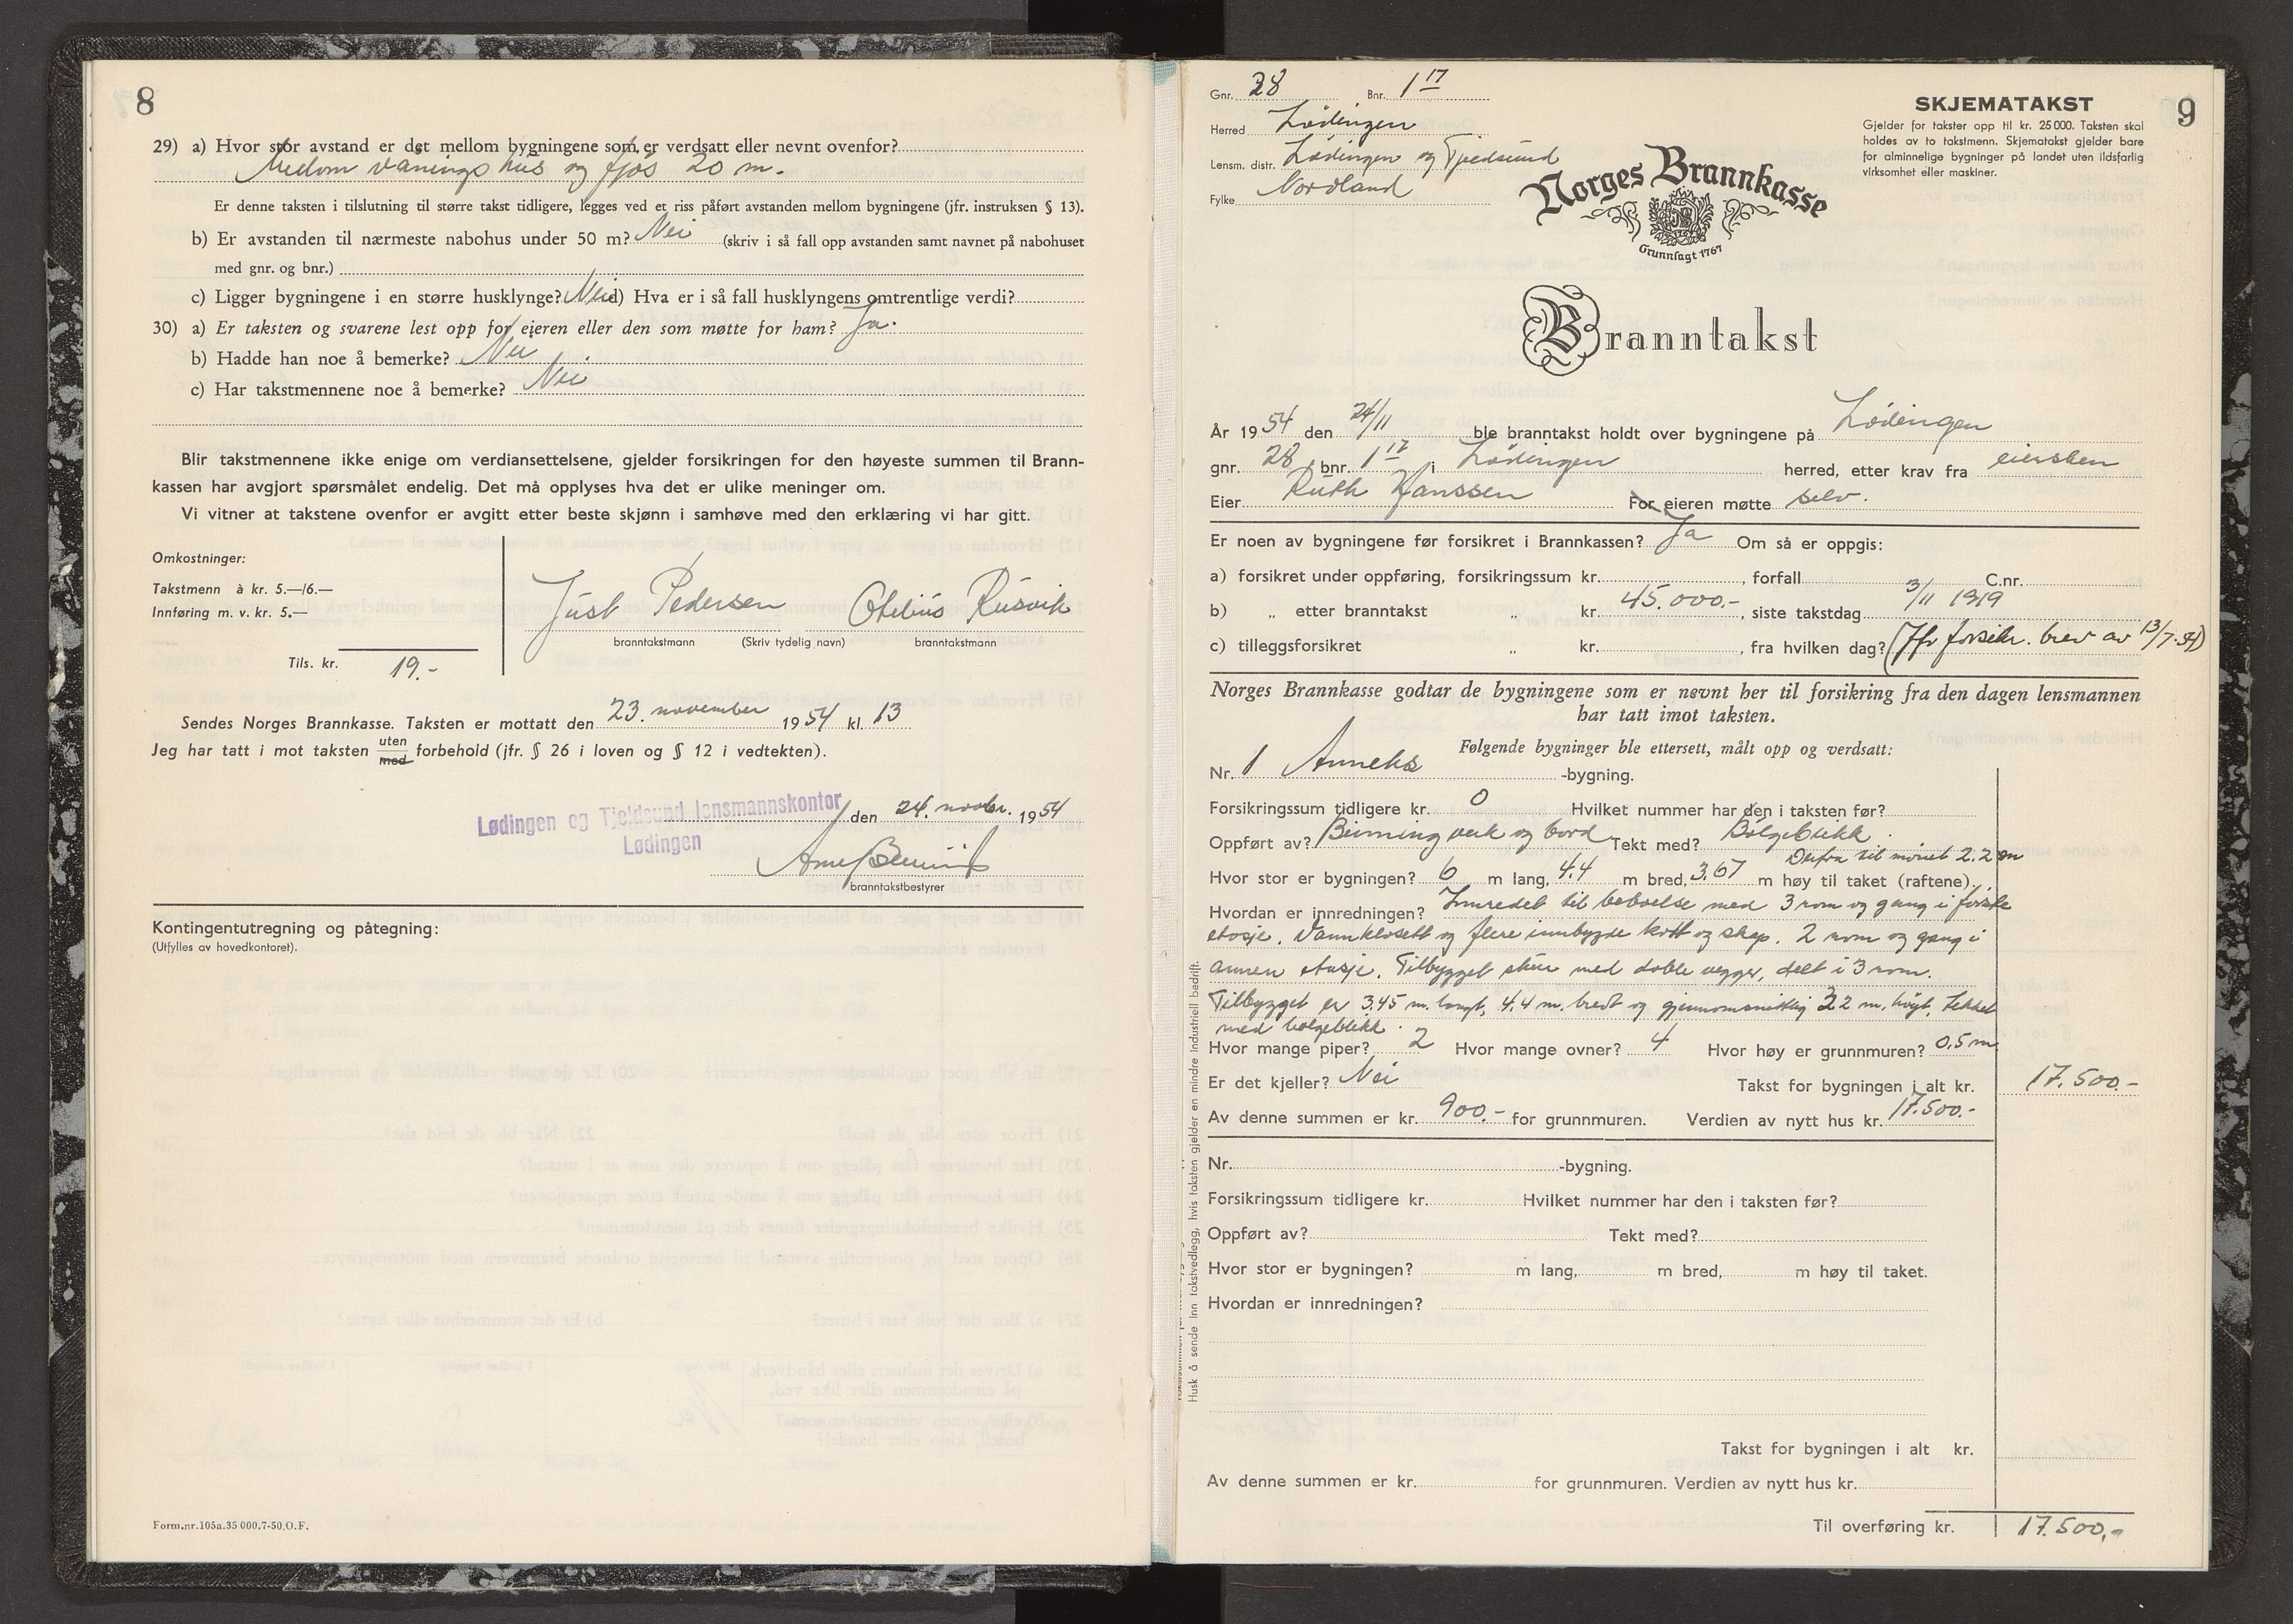 8
29) a) Hvor stor avstand er det mellom bygningene som er verdsatt eller nevnt ovenfor?
Mellom våningshus og fjøs 20 m.
Er denne taksten i tilslutning til større takst tidligere, legges ved et riss påført avstanden mellom bygningene (jfr. instruksen § 13).
b) Er avstanden til nærmeste nabohus under 50 m? Nei (skriv i så fall opp avstanden samt navnet på nabohuset
med gnr. og bnr.)
c) Ligger bygningene i en større husklynge? Nei d) Hva er i så fall husklyngens omtrentlige verdi?
30) a) Er taksten og svarene lest opp for eieren eller den som møtte for ham? Ja.
b) Hadde han noe å bemerke? Nei
c) Har takstmennene noe å bemerke? Nei
Blir takstmennene ikke enige om verdiansettelsene, gjelder forsikringen for den høyeste summen til Brann-
kassen har avgjort spørsmålet endelig. Det må opplyses hva det er ulike meninger om.
Vi vitner at takstene ovenfor er avgitt etter beste skjønn i samhøve med den erklæring vi har gitt.
Omkostninger:
Takstmenn à kr. 5.—/6.—
Innføring m. v. kr. 5.—
Just Pedersen Otelius Rusvik
branntakstmann (Skriv tydelig navn) branntakstmann
Tils. kr. 19.-
Sendes Norges Brannkasse. Taksten er mottatt den 23. november 1954 kl. 13
Jeg har tatt i mot taksten uten med forbehold (jfr. § 26 i loven og § 12 i vedtekten).
Lødingen og Tjeldsund lensmannskontor
Lødingen
den 24. novbr. 1954
branntakstbestyrer
Kontingentutregning og påtegning:
(Utfylles av hovedkontoret).
Form.nr.105a.35 000.7-50.O.F.
9
Gnr. 28 Bnr. 1 17
Herred Lødingen
Lensm. distr. Lødingen og Tjeldsund
Fylke Nordland
SKJEMATAKST
Gjelder for takster opp til kr. 25 000. Taksten skal
holdes av to takstmenn. Skjematakst gjelder bare
for alminnelige bygninger på landet uten ildsfarlig
virksomhet eller maskiner.
Norges Brannkasse
Grunnlagt 1767
Branntakst
År 1954 den 24/11 ble branntakst holdt over bygningene på Lødingen
gnr. 28, bnr. 1 17 i Lødingen herred, etter krav fra eiersken
Eier Ruth Hanssen For eieren møtte selv.
Er noen av bygningene før forsikret i Brannkassen? Ja Om så er oppgis:
a) forsikret under oppføring, forsikringssum kr. , forfall C.nr.
b) „ etter branntakst „ kr. 45.000.-, siste takstdag 3/11 1919
c) tilleggsforsikret „ kr. , fra hvilken dag? (Jfr forsikr. brev av 13/7-54)
Norges Brannkasse godtar de bygningene som er nevnt her til forsikring fra den dagen lensmannen
har tatt imot taksten.
Følgende bygninger ble ettersett, målt opp og verdsatt:
Nr. 1 Anneks -bygning.
Forsikringssum tidligere kr. 0 Hvilket nummer har den i taksten før?
Oppført av? Binningverk og bord Tekt med? Bølgeblikk.
Derfra til mønet 2.2 m
Hvor stor er bygningen? 6 m lang, 4.4 m bred, 3.67 m høy til taket (raftene).
Hvordan er innredningen? Innredet til beboelse med 3 rom og gang i første
etasje. Vannklosett og flere innbygde kott og skap. 2 rom og gang i
annen etasje. Tilbygget skur med doble vegger, delt i 3 rom.
Tilbygget er 3,45 m. langt, 4.4 m. bredt og gjennomsnittlig 2.2 m. høyt. Tekket
med bølgeblikk.
Hvor mange piper? 2 Hvor mange ovner? 4 Hvor høy er grunnmuren? 0,5 m
Er det kjeller? Nei Takst for bygningen i alt kr. 17.500.-
Av denne summen er kr. 900.- for grunnmuren. Verdien av nytt hus kr. 17.500.-
Nr. -bygning.
Forsikringssum tidligere kr. Hvilket nummer har den i taksten før?
Oppført av? Tekt med?
Hvor stor er bygningen? m lang, m bred, m høy til taket.
Hvordan er innredningen?
Takst for bygningen i alt kr.
Av denne summen er kr. for grunnmuren. Verdien av nytt hus kr.
Til overføring kr. 17.500,-
Husk å sende inn takstvedlegg, hvis taksten gjelder en mindre industriell bedrift.